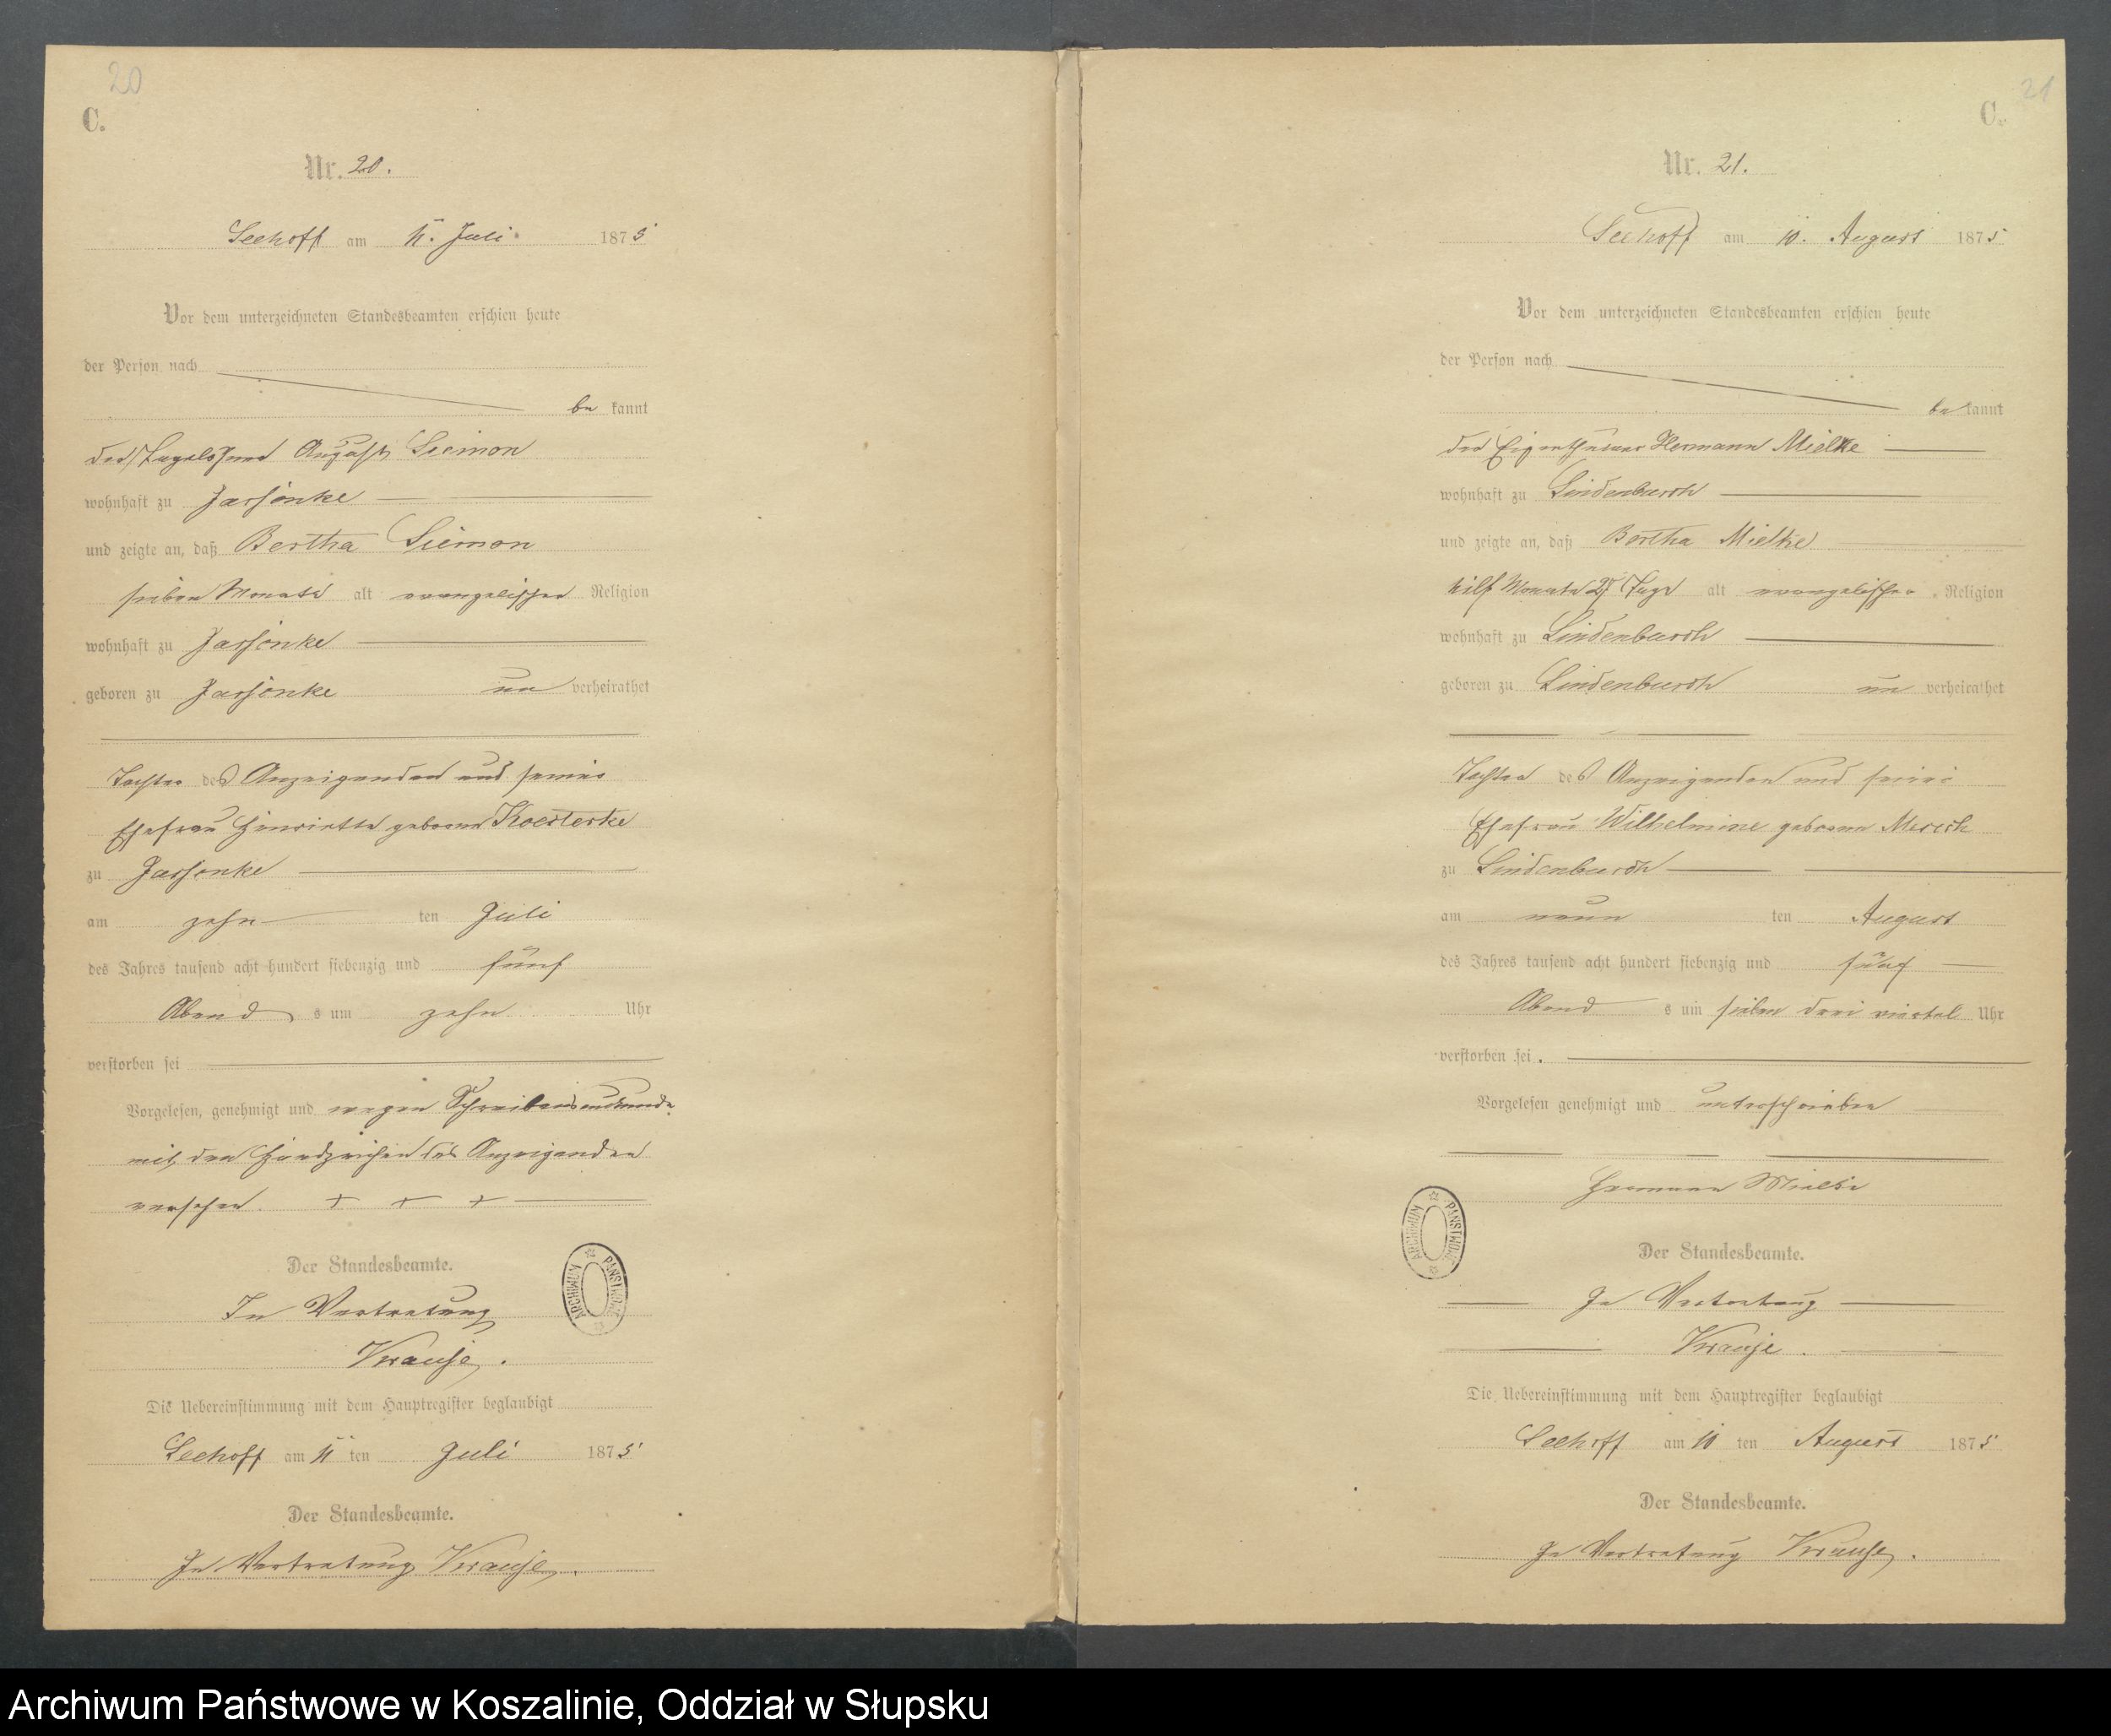 20
C.
Nr. 20.
Seehoff am 11. Juli 1875
Vor dem unterzeichneten Standesbeamten erschien heute
der Person nach
be kannt
der Tagelöhner August Siemon
wohnhaft zu Jassonke
und zeigte an, daß Bertha Siemon
sieben Monate alt evangelischer Religion
wohnhaft zu Jassonke
geboren zu Jassonke un verheirathet
Tochter des Anzeigenden und seiner
Ehefrau Henriette geborne Koesterke
zu Jassonke
am zehn ten Juli
des Jahres tausend acht hundert siebenzig und fünf
Abend s um zehn Uhr
verstorben sei
Vorgelesen, genehmigt und wegen Schreibensunkunde
mit den Handzeichen des Anzeigenden
versehen. + + +
Der Standesbeamte.
In Vertretung
Krause.
Die Uebereinstimmung mit dem Hauptregister beglaubigt
Seehoff am 11 ten Juli 1875
Der Standesbeamte.
In Vertretung Krause.
ARCHIWUM PAŃSTWOWE
21
C.
Nr. 21.
Seehoff am 10. August 1875
Vor dem unterzeichneten Standesbeamten erschien heute
der Person nach
be kannt
der Eigenthümer Hermann Mielke
wohnhaft zu Lindenbusch
und zeigte an, daß Bertha Mielke
Monate 27 Tage alt evangelischer Religion
wohnhaft zu Lindenbusch
geboren zu Lindenbusch un verheirathet
Tochter des Anzeigenden und seiner
Ehefrau Wilhelmine geborne
zu Lindenbusch
am neun ten August
des Jahres tausend acht hundert siebenzig und fünf
Abend s um sieben drei viertel Uhr
verstorben sei.
Vorgelesen genehmigt und unterschrieben
Hermann Mielke
Der Standesbeamte.
In Vertretung
Krause.
Die Uebereinstimmung mit dem Hauptregister beglaubigt
Seehoff am 10 ten August 1875
Der Standesbeamte.
In Vertretung Krause.
ARCHIWUM PAŃSTWOWE
Archiwum Państwowe w Koszalinie, Oddział w Słupsku